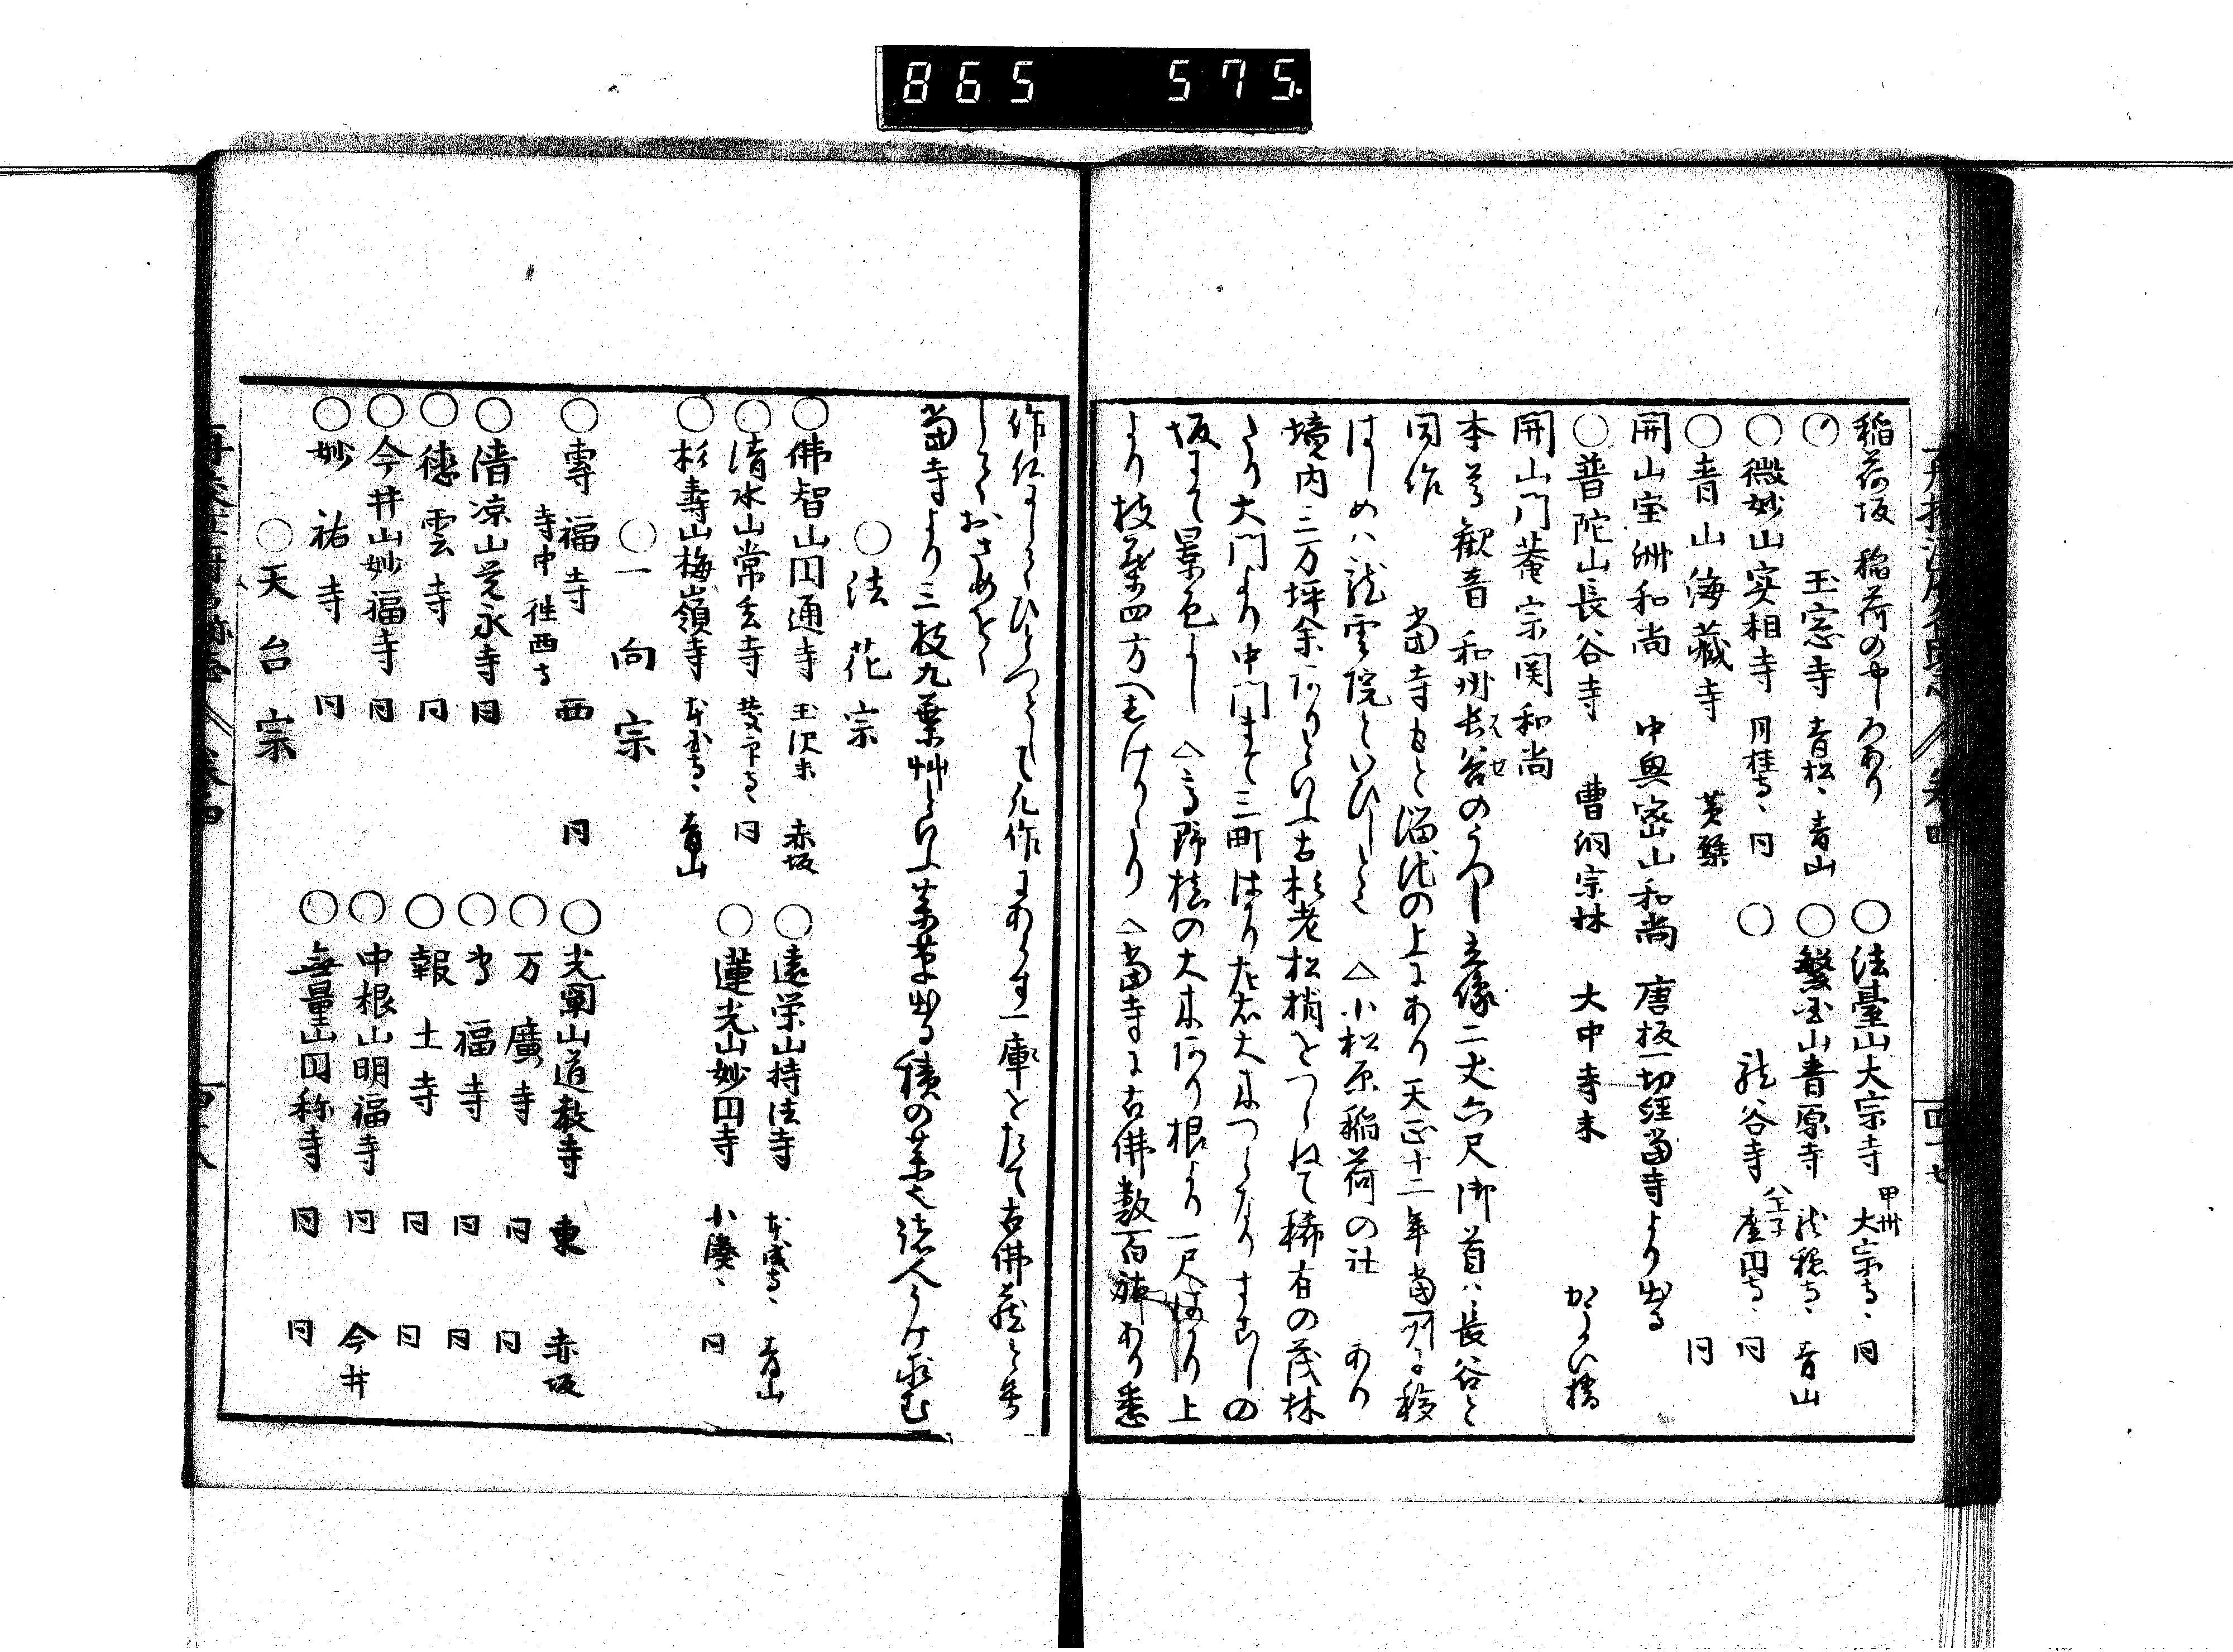 865 575.
稲荷坂 稲荷の中ろあり ○法臺山大宗寺 甲州大宗寺〻 同
○玉窓寺 青松〻 青山 ○鳌玉山青原寺 竜穏寺〻 青山
○微妙山実相寺 月桂寺〻 同 ○竜谷寺 八王子 同
○青山海蔵寺 黄檗 同
開山宝洲和尚 中興密山和尚 唐板一切経当寺より出る
○普陀山長谷寺 曹洞宗 大中寺末 かうかい橋
開山門菴宗関和尚
本尊観音 和州長谷のうつし立像二丈六尺御首ハ長谷と
同作 当寺もと溜池の上にあり天正十二年当所に移
はしめハ竜雲院といひしとそ △小松原稲荷の社 あり
境内二万坪余ありといふ古杉老松梢をつらねて稀有の茂林
なり大門より中門まて三町はかり左右大木つらなりすこしの
坂にて景色よし △高野槙の大木あり根より一尺はかり上
より枝葉四方へしけりたり △当寺に古佛数百躰あり悉
作仏にしてひとつとして凡作にあらす一庫をたて古佛蔵と号
しておさめをく
当寺より三枝九葉艸といふ薬草出る積の薬也諸人うけ求む
○法花宗
○佛智山円通寺 玉沢末 赤坂 ○遠栄山持法寺 青山
○清水山常玄寺 同 ○蓮光山妙円寺 小湊〻 同
○杉寿山梅嶺寺 青山
○一向宗
○専福寺 西 同 ○光闡山道教寺 東 赤坂
寺中 徃西寺 ○万廣寺 同 同
○清凉山覚永寺 同 ○専福寺 同 同
○徳雲寺 同 ○報土寺 同 同
○今井山妙福寺 同 ○中根山明福寺 同 今井
○妙祐寺 同 ○無量山円称寺 同 同
○天台宗